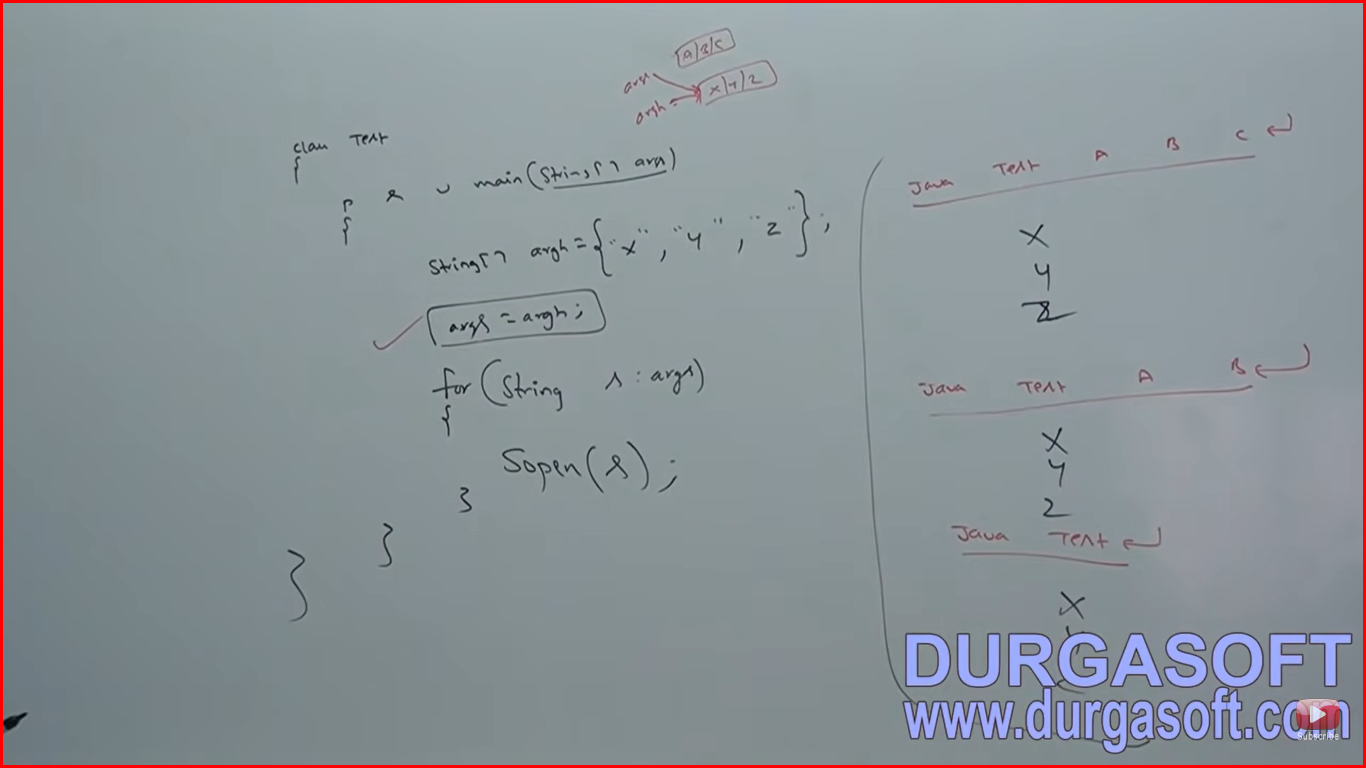 A|B|C
args
X|Y|Z
argh
class Test
{
p s v main(String[] args)
{
String[] argh = {"X", "Y", "Z"};
args = argh;
for (String s : args)
{
Sopen(s);
}
}
}
Java Test A B C
X
Y
Z
Java Test A B
X
Y
Z
Java Test
X
Y
DURGASOFT
www.durgasoft.com
Subscribe